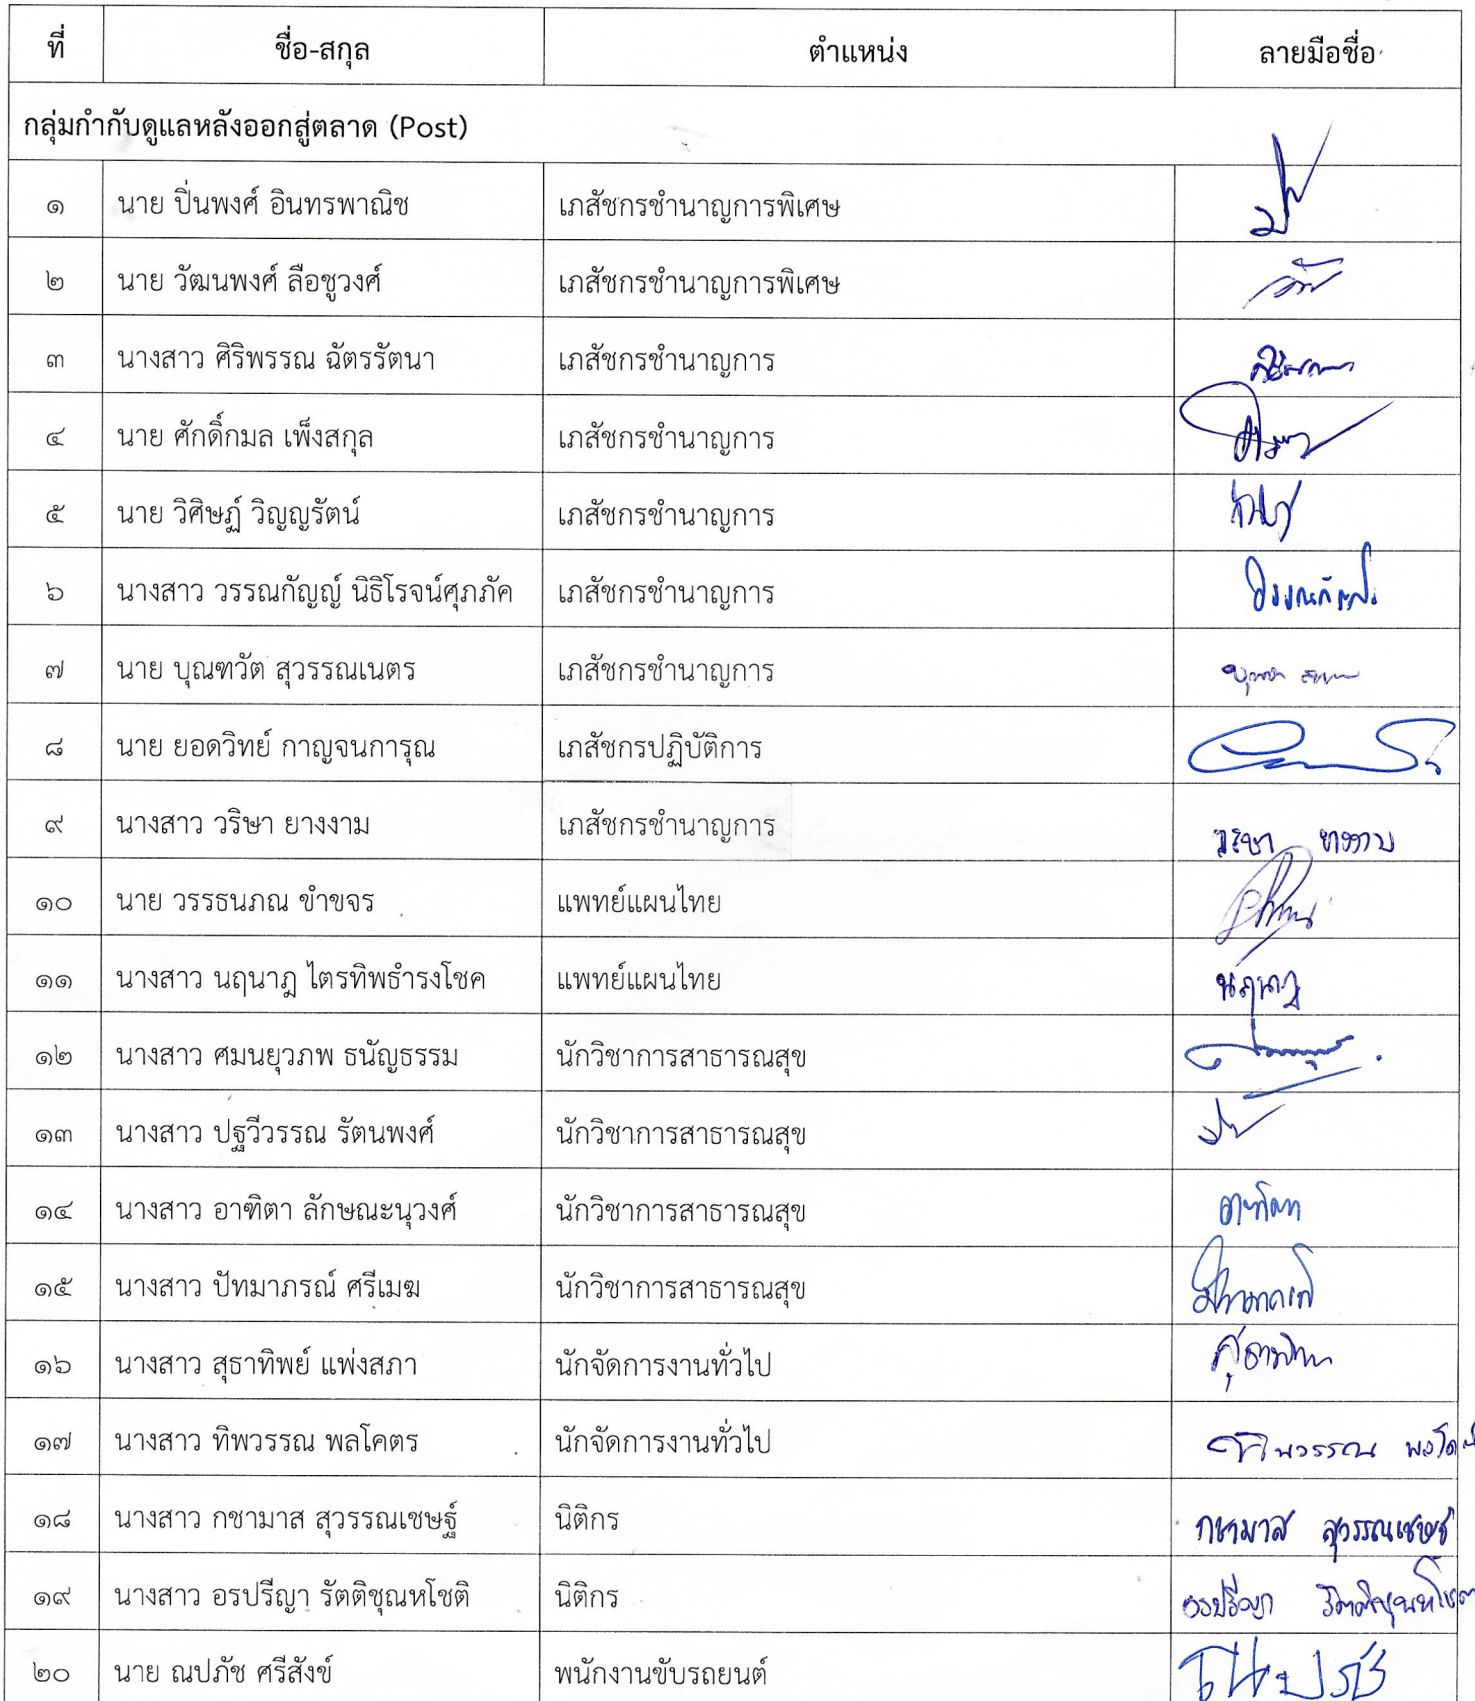 ที่ ชื่อ-สกุล ตำแหน่ง ลายมือชื่อ
กลุ่มกำกับดูแลหลังออกสู่ตลาด (Post)
๑ นาย ปิ่นพงศ์ อินทรพาณิช เภสัชกรชำนาญการพิเศษ
๒ นาย วัฒนพงศ์ ลือชูวงศ์ เภสัชกรชำนาญการพิเศษ
๓ นางสาว ศิริพรรณ ฉัตรรัตนา เภสัชกรชำนาญการ
๔ นาย ศักดิ์กมล เพ็งสกุล เภสัชกรชำนาญการ
๕ นาย วิศิษฏ์ วิญญรัตน์ เภสัชกรชำนาญการ
๖ นางสาว วรรณกัญญ์ นิธิโรจน์ศุภภัค เภสัชกรชำนาญการ
๗ นาย บุณฑวัต สุวรรณเนตร เภสัชกรชำนาญการ
๘ นาย ยอดวิทย์ กาญจนการุณ เภสัชกรปฏิบัติการ
๙ นางสาว วริษา ยางงาม เภสัชกรชำนาญการ วริษา ยางงาม
๑๐ นาย วรรธนภณ ขำขจร แพทย์แผนไทย
๑๑ นางสาว นฤนาฎ ไตรทิพธำรงโชค แพทย์แผนไทย นฤนาฎ
๑๒ นางสาว ศมนยุวภพ ธนัญธรรม นักวิชาการสาธารณสุข
๑๓ นางสาว ปฐวีวรรณ รัตนพงศ์ นักวิชาการสาธารณสุข
๑๔ นางสาว อาฑิตา ลักษณะนุวงศ์ นักวิชาการสาธารณสุข อาฑิตา
๑๕ นางสาว ปัทมาภรณ์ ศรีเมฆ นักวิชาการสาธารณสุข
๑๖ นางสาว สุธาทิพย์ แพ่งสภา นักจัดการงานทั่วไป
๑๗ นางสาว ทิพวรรณ พลโคตร นักจัดการงานทั่วไป ทิพวรรณ
๑๘ นางสาว กชามาส สุวรรณเชษฐ์ นิติกร กชามาส สุวรรณเชษฐ์
๑๙ นางสาว อรปรีญา รัตติชุณหโชติ นิติกร อรปรีญา รัตติชุณหโชติ
๒๐ นาย ณปภัช ศรีสังข์ พนักงานขับรถยนต์